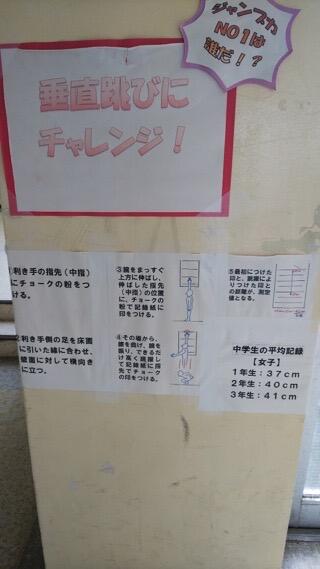 ジャンプ力
NO1は
誰だ!?
垂直跳びに
チャレンジ!
1利き手の指先(中指)
にチョークの粉をつ
ける。
2利き手側の足を床面
に引いた線に合わせ、
壁面に対して横向き
に立つ。
③腕をまっすぐ
上方に伸ばし、
伸ばした指先
(中指)の位置
に、チョークの
粉で記録紙に
印をつける。
④その場から、
膝を曲げ、腕を
振り、できるだ
け高く跳躍し
て記録紙に指
先でチョーク
の印をつける。
⑤最初につけた
印と、跳躍によ
りつけた印と
の距離が、測定
値となる。
中学生の平均記録
【女子】
1年生:37cm
2年生:40cm
3年生:41cm